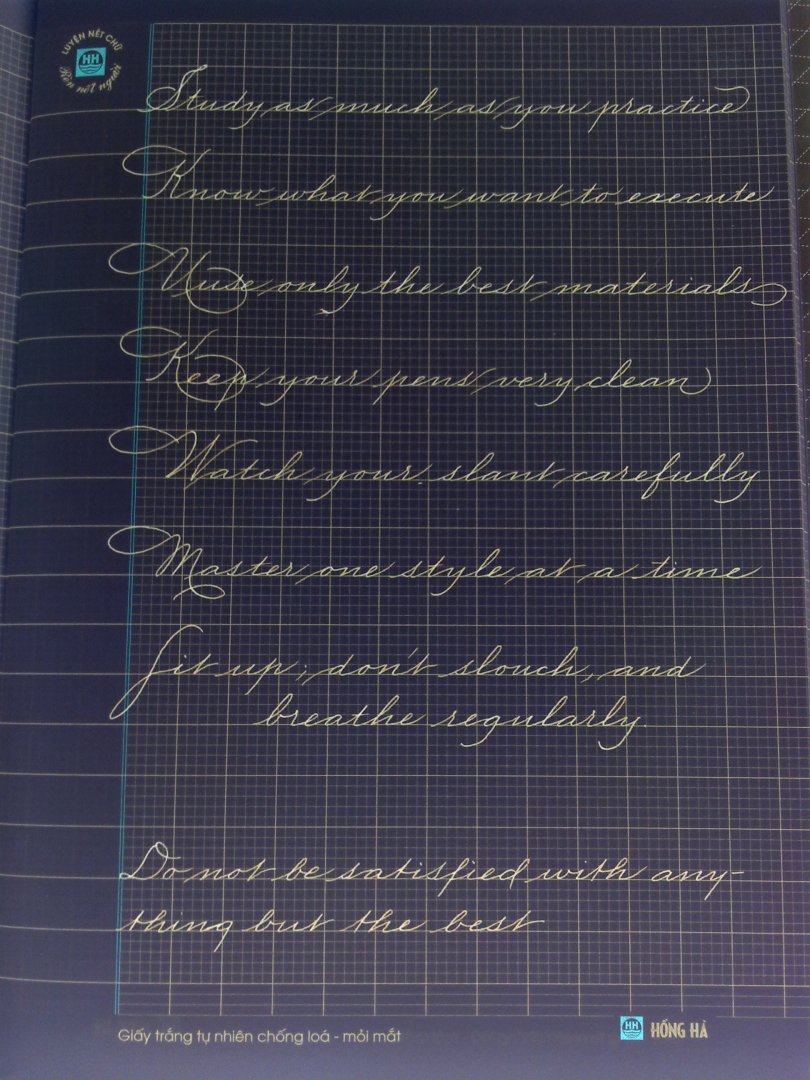 LUYỆN NÉT CHỮ
HH
Rèn nết người
Study as much as you practice
Know what you want to execute
Uuse only the best materials
Keep your pens very clean
Watch your slant carefully
Master one style at a time
Sit up; don't slouch, and
breathe regularly.
Do not be satisfied with any-
thing but the best
Giấy trắng tự nhiên chống loá - mỏi mắt
HH HỒNG HÀ